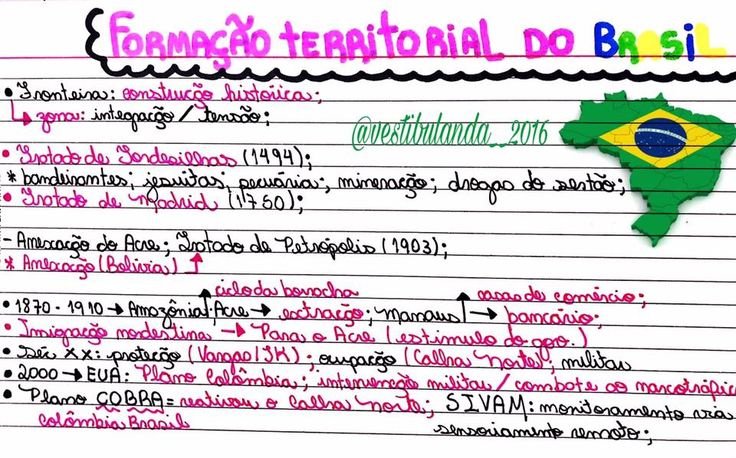 FORMAÇÃO TERRITORIAL DO BRASIL
• Fronteira: construção histórica;
↳ zona: integração / tensão;
@vestibulanda_2016
• Tratado de Tordesilhas (1494);
* bandeirantes; jesuítas; pecuária; mineração; drogas do sertão;
• Tratado de Madrid (1750);
- Anexação do Acre; Tratado de Petrópolis (1903);
* Anexação (Bolívia) ↑
ciclo da borracha
casas de comércio;
• 1870 - 1910 → Amazônia; Acre → extração; Manaus → bancário;
• Imigração nordestina → Para o Acre (estímulo do gov.)
• Séc XX: proteção (Vargas/JK); ocupação (Calha Norte); militar
• 2000 → EUA: Plano Colômbia; intervenção militar / combate ao narcotráfico
• Plano COBRA = reativou o Calha Norte; SIVAM: monitoramento via
colômbia Brasil
sensoriamento remoto;